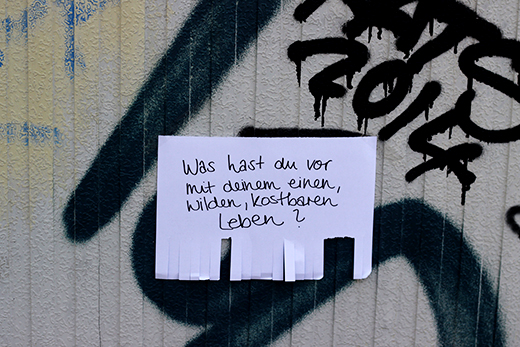 2014
Was hast du vor
mit deinem einen,
wilden, kostbaren
Leben?